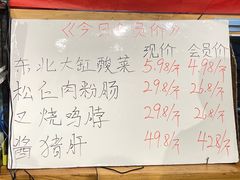 《今日会员价》
现价 会员价
东北大缸酸菜 5.98/斤 4.98/斤
松仁肉粉肠 29.8/斤 26.8/斤
叉烧鸡脖 29.8/斤 26.8/斤
酱猪肝 49.8/斤 42.8/斤